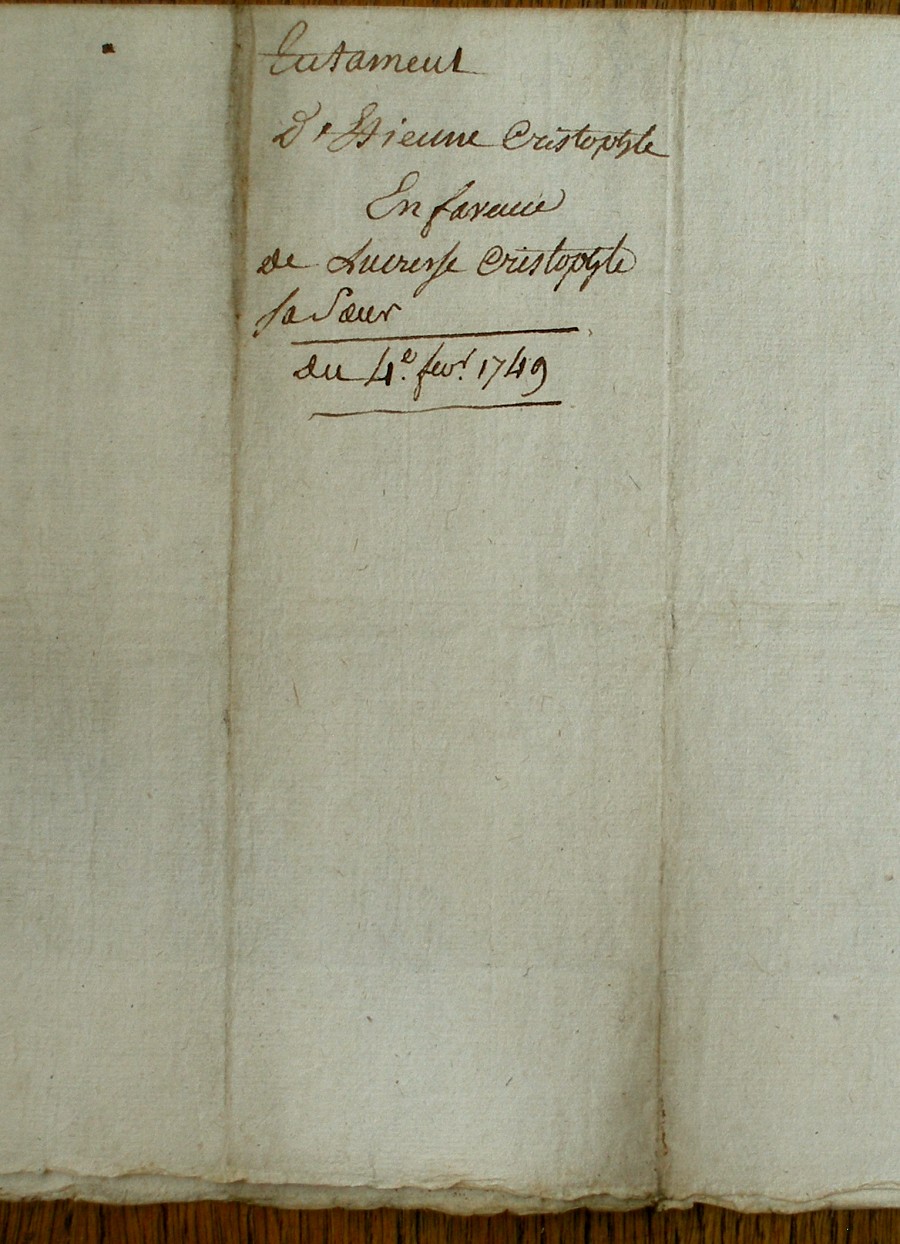 Testament
D'Etienne Cristophle
En faveur
de Lucresse Cristophle
sa Sœur
du 4e. fevr. 1749